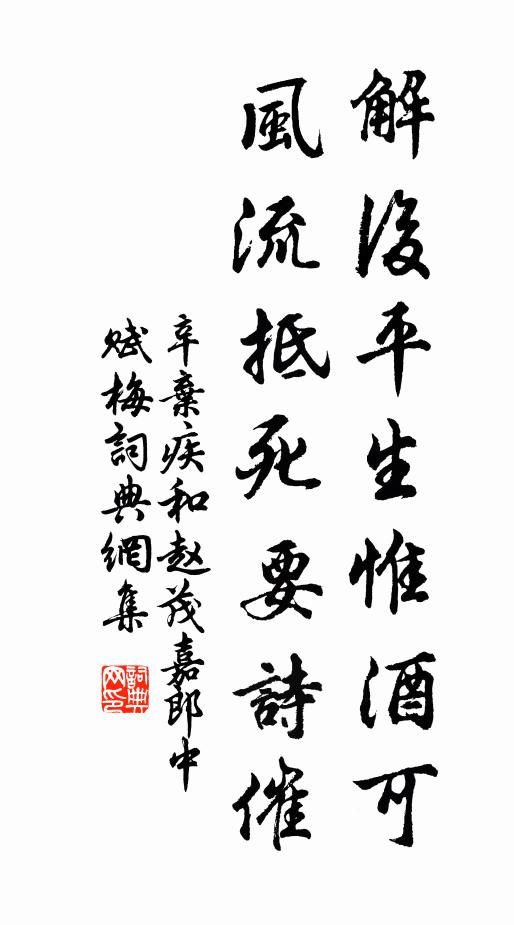 解後平生惟酒可
風流抵死要詩催
辛棄疾和赵茂嘉郎中
赋梅詞典網集
詞典
网印